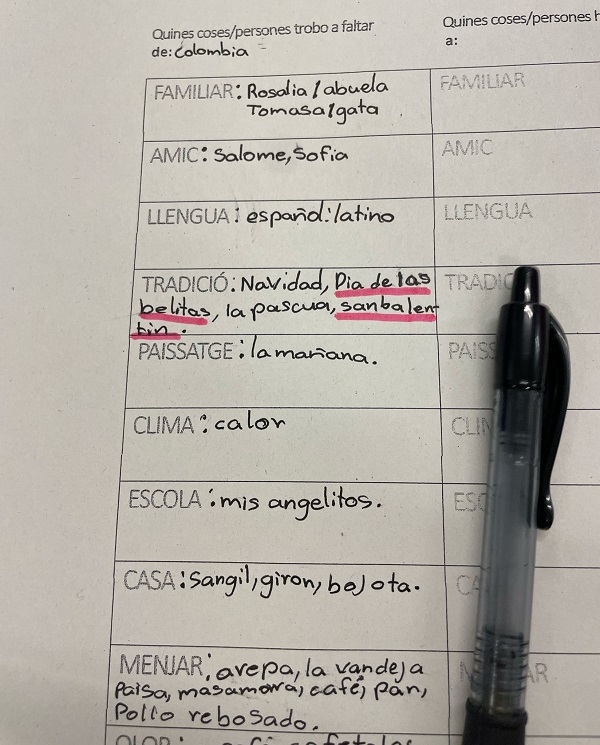 Quines coses/persones trobo a faltar
de: Colombia
Quines coses/persones h
a:
FAMILIAR: Rosalia/abuela
Tomasa/gata
FAMILIAR
AMIC: Salome, Sofia
AMIC
LLENGUA: español: latino
LLENGUA
TRADICIÓ: Navidad, Dia de las
belitas, la pascua, sanbalen
tin.
TRADIC
PAISSATGE: la mañana.
PAISS
CLIMA: calor
CLIM
ESCOLA: mis angelitos.
ESC
CASA: Sangil, giron, bojota.
CA
MENJAR: arepa, la vandeja
Paisa, masamora, café, pan,
Pollo rebosado.
AR
OLOR: